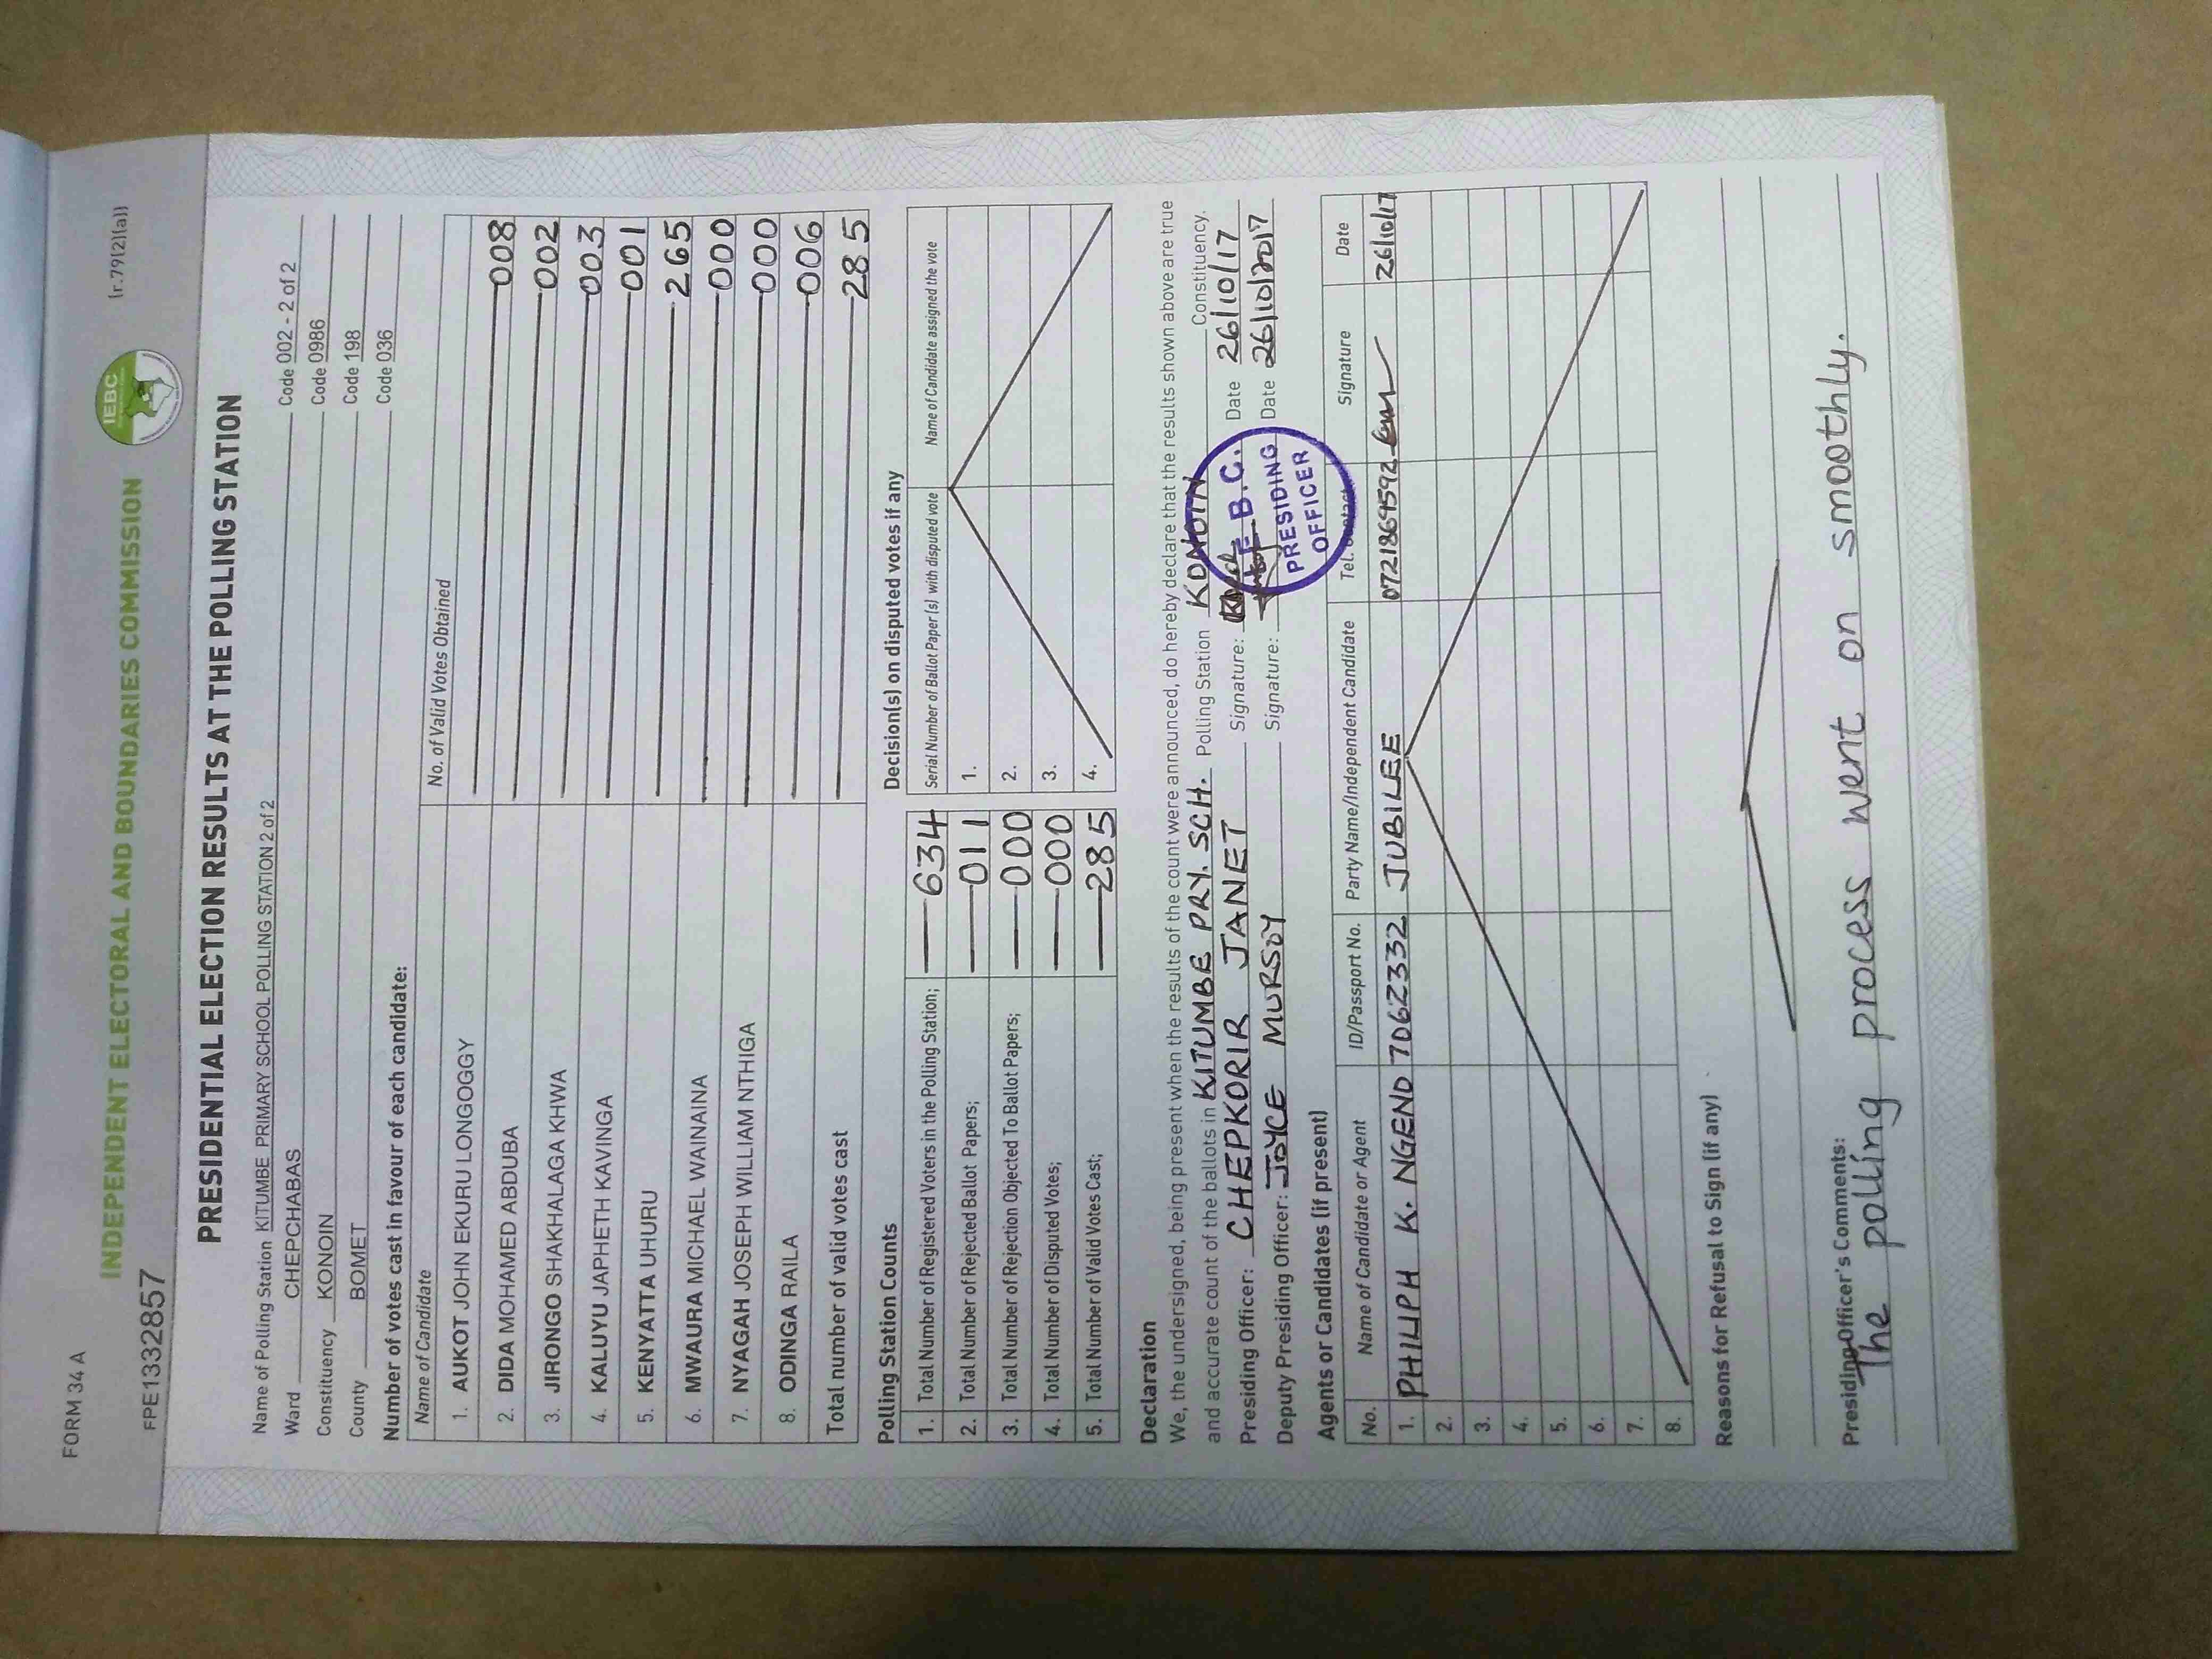 FORM 34 A
(r.79(2)(a))
IEBC
INDEPENDENT ELECTORAL AND BOUNDARIES COMMISSION
FPE1332857
PRESIDENTIAL ELECTION RESULTS AT THE POLLING STATION
Name of Polling Station KITUMBE PRIMARY SCHOOL POLLING STATION 2 of 2 Code 002 - 2 of 2
Ward CHEPCHABAS Code 0986
Constituency KONOIN Code 198
County BOMET Code 036
Number of votes cast in favour of each candidate:
Name of Candidate No. of Valid Votes Obtained
1. AUKOT JOHN EKURU LONGOGGY 008
2. DIDA MOHAMED ABDUBA 002
3. JIRONGO SHAKHALAGA KHWA 003
4. KALUYU JAPHETH KAVINGA 001
5. KENYATTA UHURU 265
6. MWAURA MICHAEL WAINAINA 000
7. NYAGAH JOSEPH WILLIAM NTHIGA 000
8. ODINGA RAILA 006
Total number of valid votes cast 285
Polling Station Counts
1. Total Number of Registered Voters in the Polling Station; 634
2. Total Number of Rejected Ballot Papers; 011
3. Total Number of Rejection Objected To Ballot Papers; 000
4. Total Number of Disputed Votes; 000
5. Total Number of Valid Votes Cast; 285
Decision(s) on disputed votes if any
Serial Number of Ballot Paper (s) with disputed vote Name of Candidate assigned the vote
1.
2.
3.
4.
Declaration
We, the undersigned, being present when the results of the count were announced, do hereby declare that the results shown above are true
and accurate count of the ballots in KITUMBE PRY. SCH. Polling Station KONOIN Constituency.
Presiding Officer: CHEPKORIR JANET Signature: Date 26/10/17
Deputy Presiding Officer: JOYCE MURSOY Signature: Date 26/10/2017
I.E.B.C.
PRESIDING
OFFICER
Agents or Candidates (if present)
No. Name of Candidate or Agent ID/Passport No. Party Name/Independent Candidate Tel. Contact Signature Date
1. PHILIPH K. NGEND 7062332 JUBILEE 0721869592 26/10/17
2.
3.
4.
5.
6.
7.
8.
Reasons for Refusal to Sign (if any)
Presiding Officer's Comments:
The polling process went on smoothly.